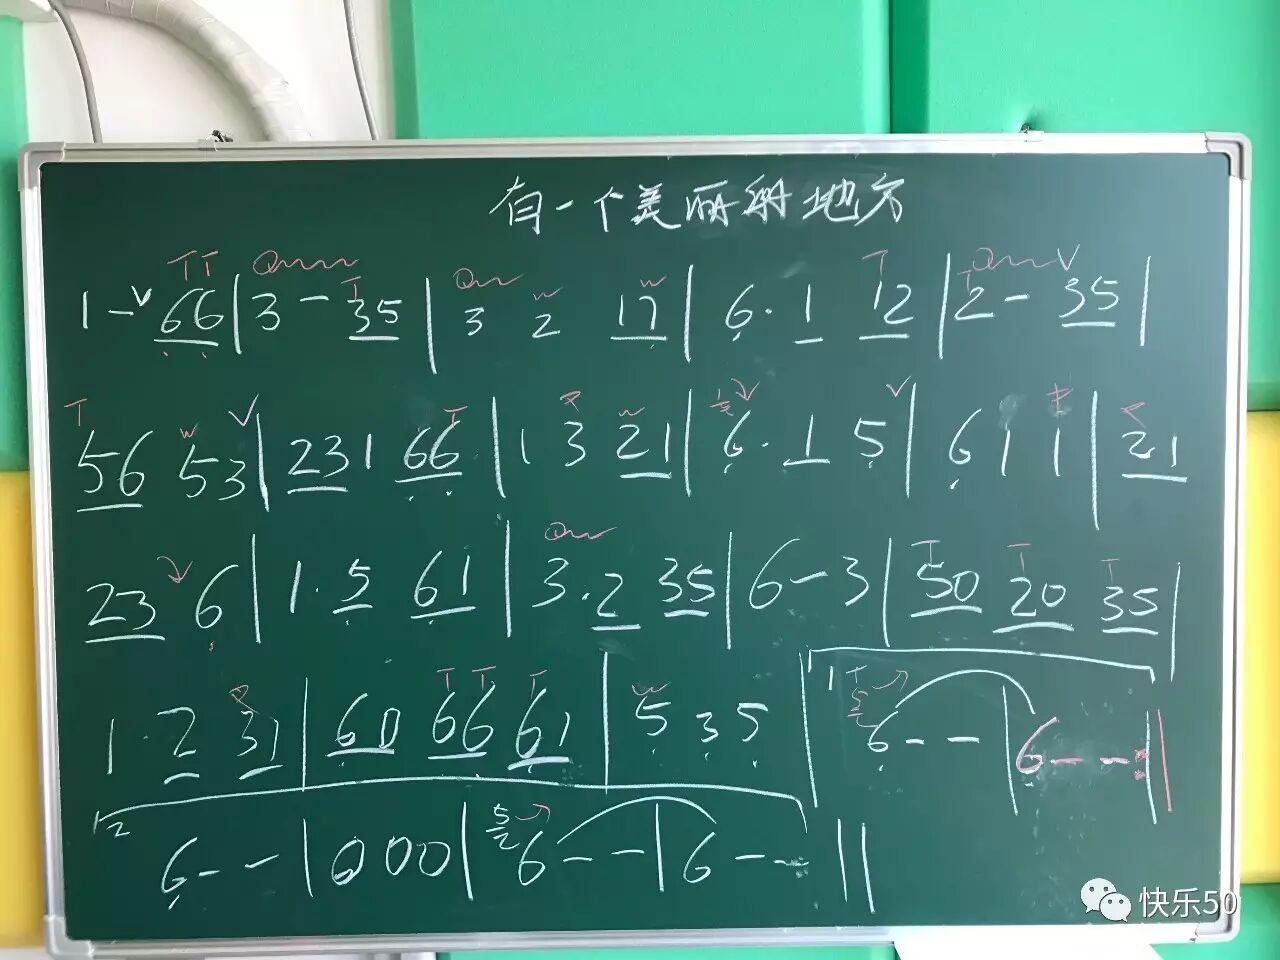 有一个美丽的地方
1 - 66 | 3 - 35 | 3 2 17 | 6· 1 12 | 2 - 35 |
56 53 | 231 66 | 1 3 21 | 6· 1 5 | 6 1 1 | 21
23 6 | 1· 5 61 | 3· 2 35 | 6 - 3 | 50 20 35 |
1· 2 31 | 60 66 61 | 5 3 5 | 1 6 - - | 6 - - :||
2 6 - - | 0 0 0 | 6 - - | 6 - - ||
快乐50